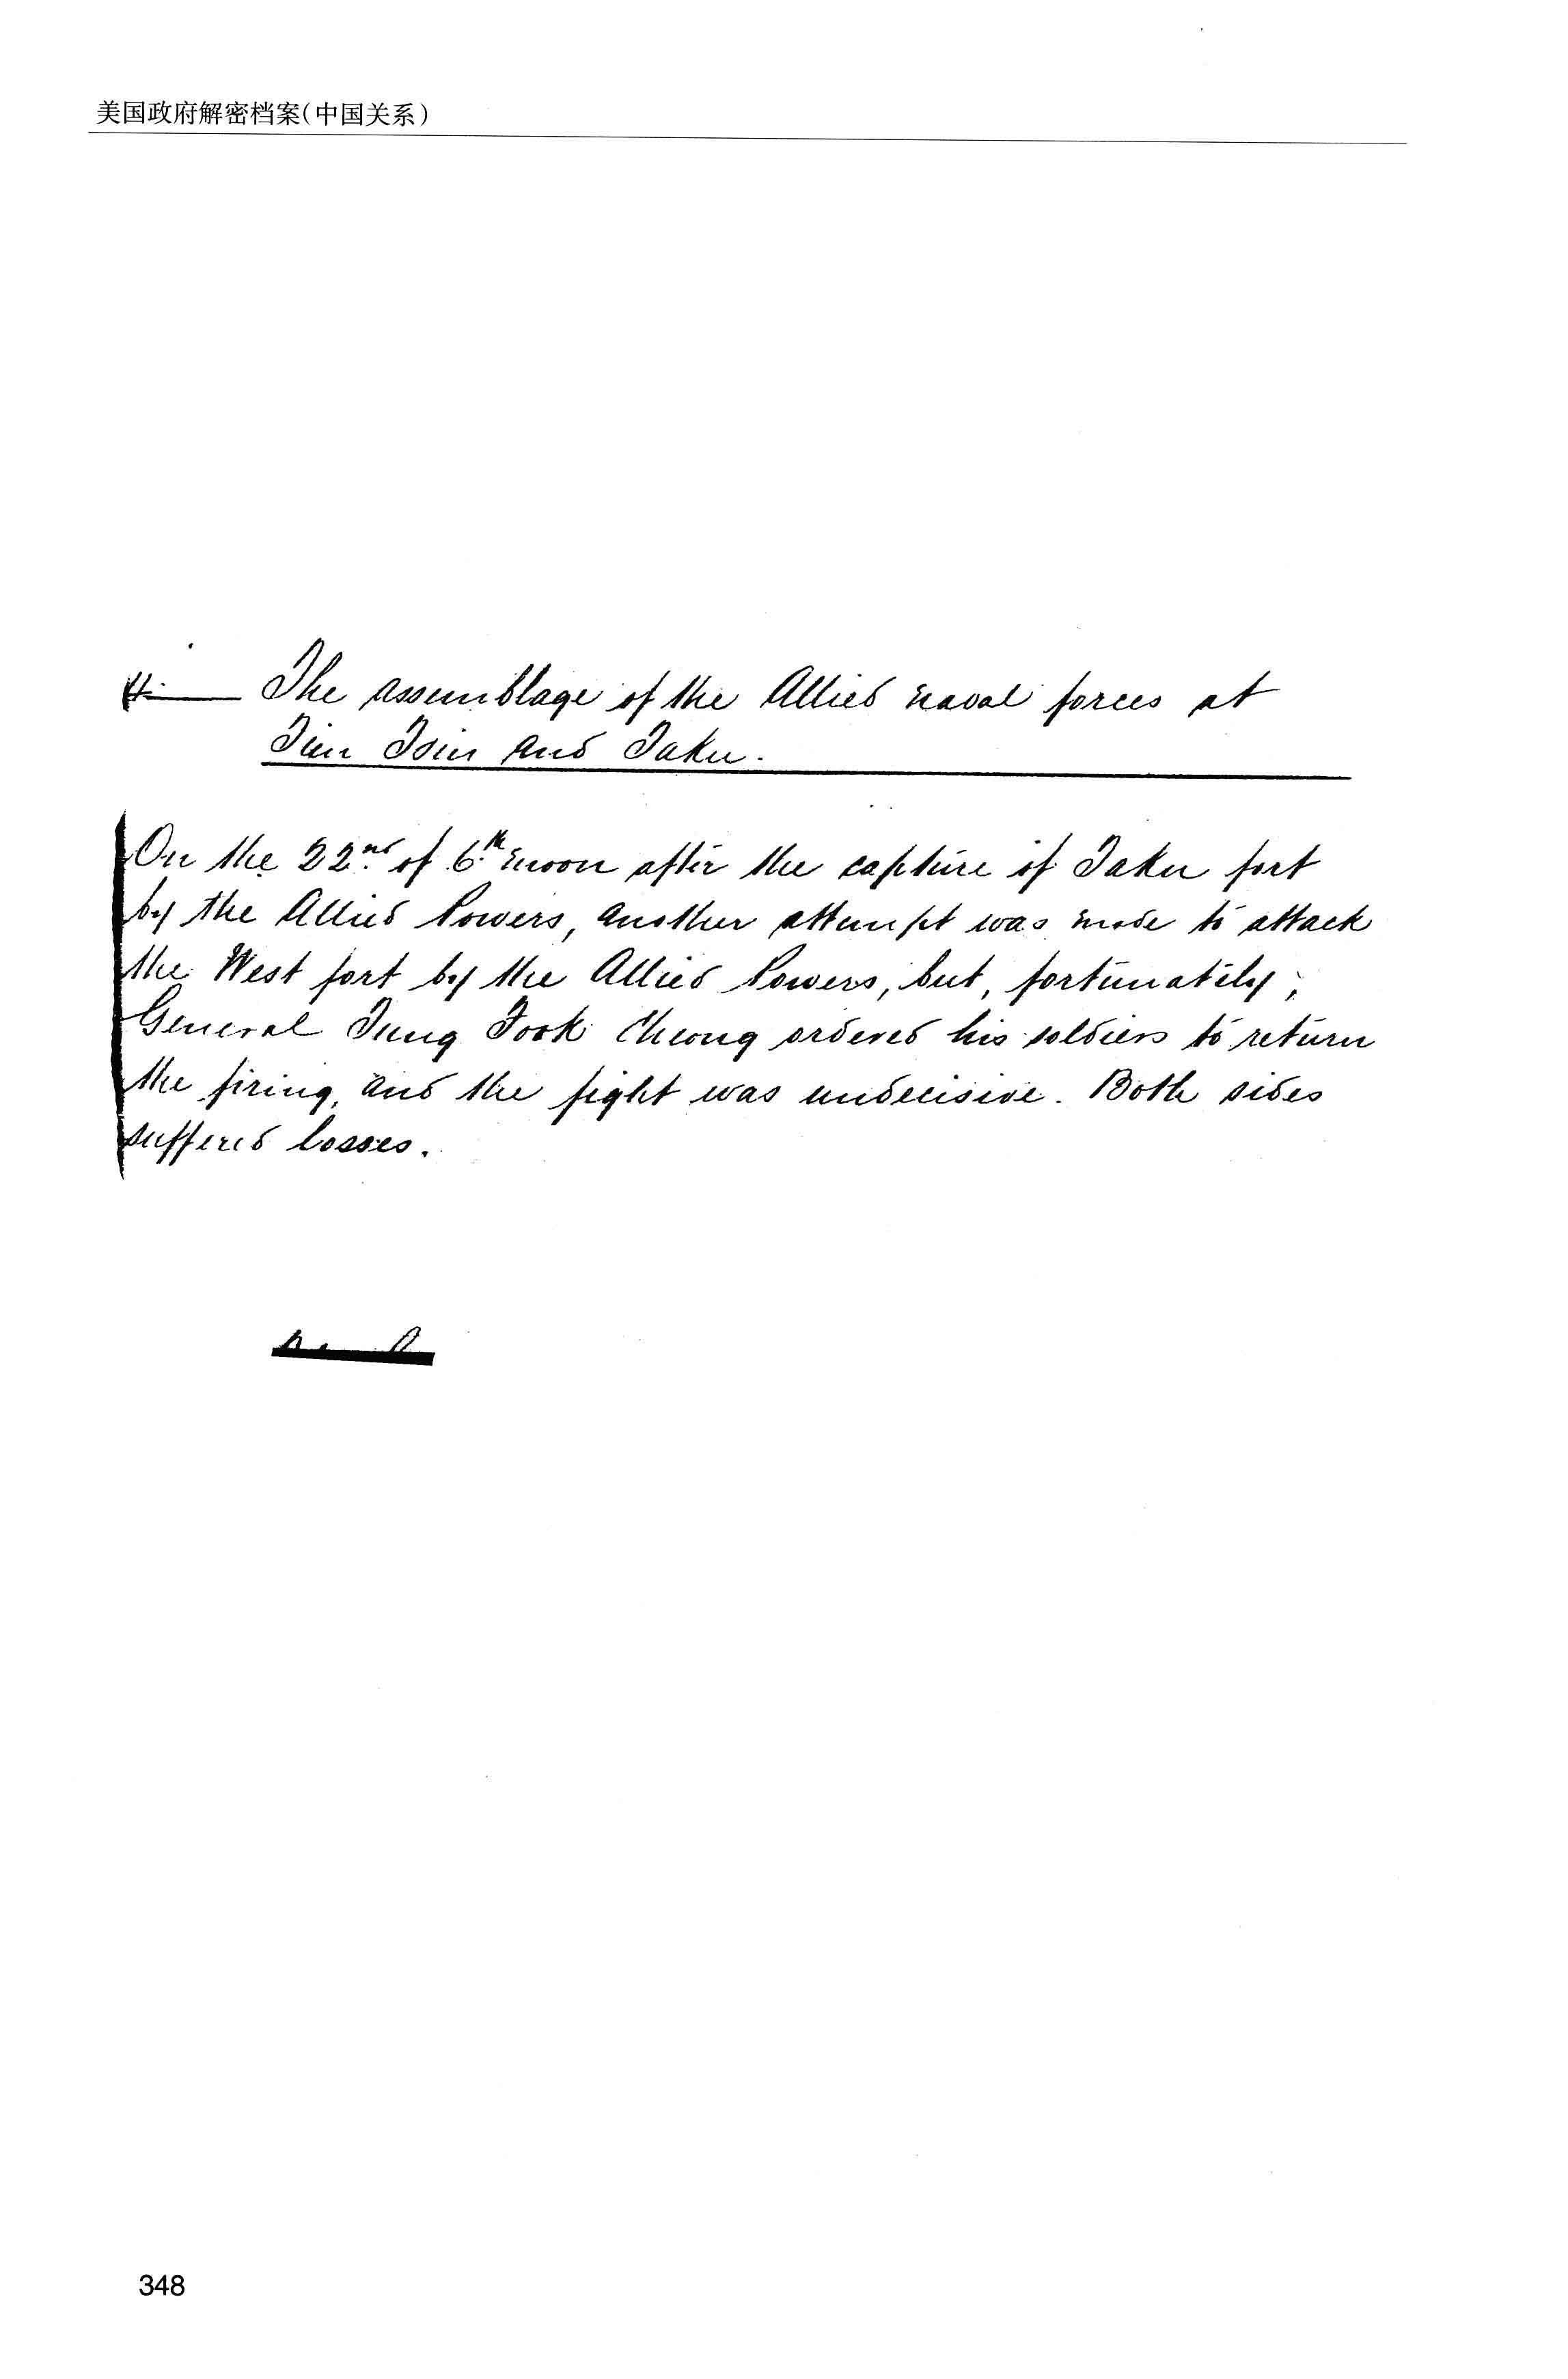 美国政府解密档案(中国关系)
The assemblage of the Allied naval forces at
Tien Tsin and Taku.
On the 22nd of 6th moon after the capture of Taku fort
by the Allied Powers, another attempt was made to attack
the West fort by the Allied Powers, but, fortunately,
General Tung Fook Cheong ordered his soldiers to return
the firing, and the fight was undecisive. Both sides
suffered losses.
348